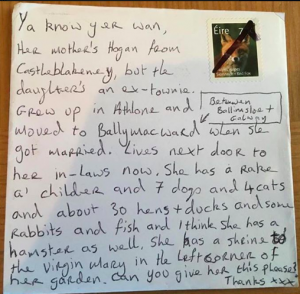 Ya know yer wan,
Éire 7
Her mother's Hogan from
Castleblakeney, but the
daughter's an ex-townie.
Grew up in Athlone and
Between
Ballinasloe +
Galway
moved to Ballymacward when she
got married. Lives next door to
her in-laws now. She has a rake
a' childer and 7 dogs and 4 cats
and about 30 hens + ducks and some
rabbits and fish and I think she has a
hamster as well. She has a shrine to
the Virgin Mary in the left corner of
her garden. Can you give her this please?
Thanks xxx!